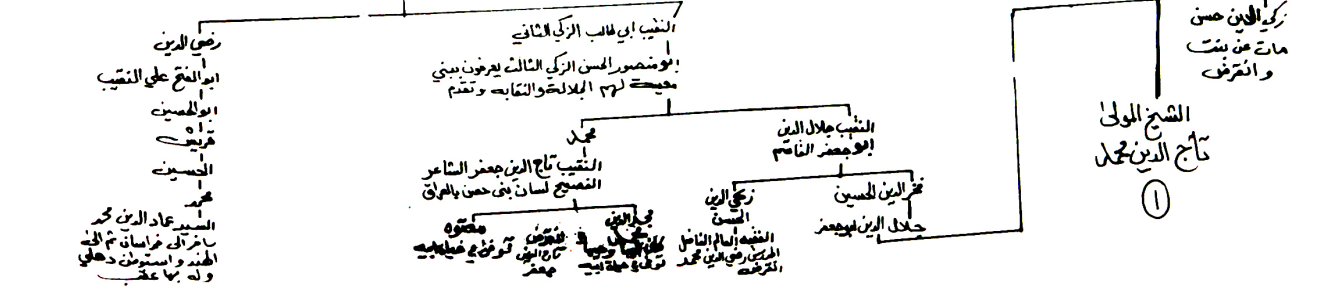 زكي الدين حسن
مات عن بنت
و انقرض
الشيخ المولى
تاج الدين محمد
١
النقيب ابي طالب الزكي الثاني
ابو منصور الحسن الزكي الثالث يعرفون ببني
معية لهم الجلالة والنقابه وتقدم
النقيب جلال الدين
ابو جعفر القاسم
فخر الدين الحسين
جلال الدين ابو جعفر
زكي الدين
الحسن
الفقيه العالم الفاضل
المدرس رضي الدين محمد
انقرض
محمد
النقيب تاج الدين جعفر الشاعر
الفصيح لسان بني حسن بالعراق
مجد الدين
محمد
توفي في حياة ابيه
انقرض
تاج الدين
جعفر
معتوه
توفي في حياة ابيه
رضي الدين
ابو الفتح علي النقيب
ابو الحسين
قريش
الحسين
محمد
السيد عماد الدين محمد
سافر الى خراسان ثم الى
الهند و استوطن دهلي
وله بها عقب